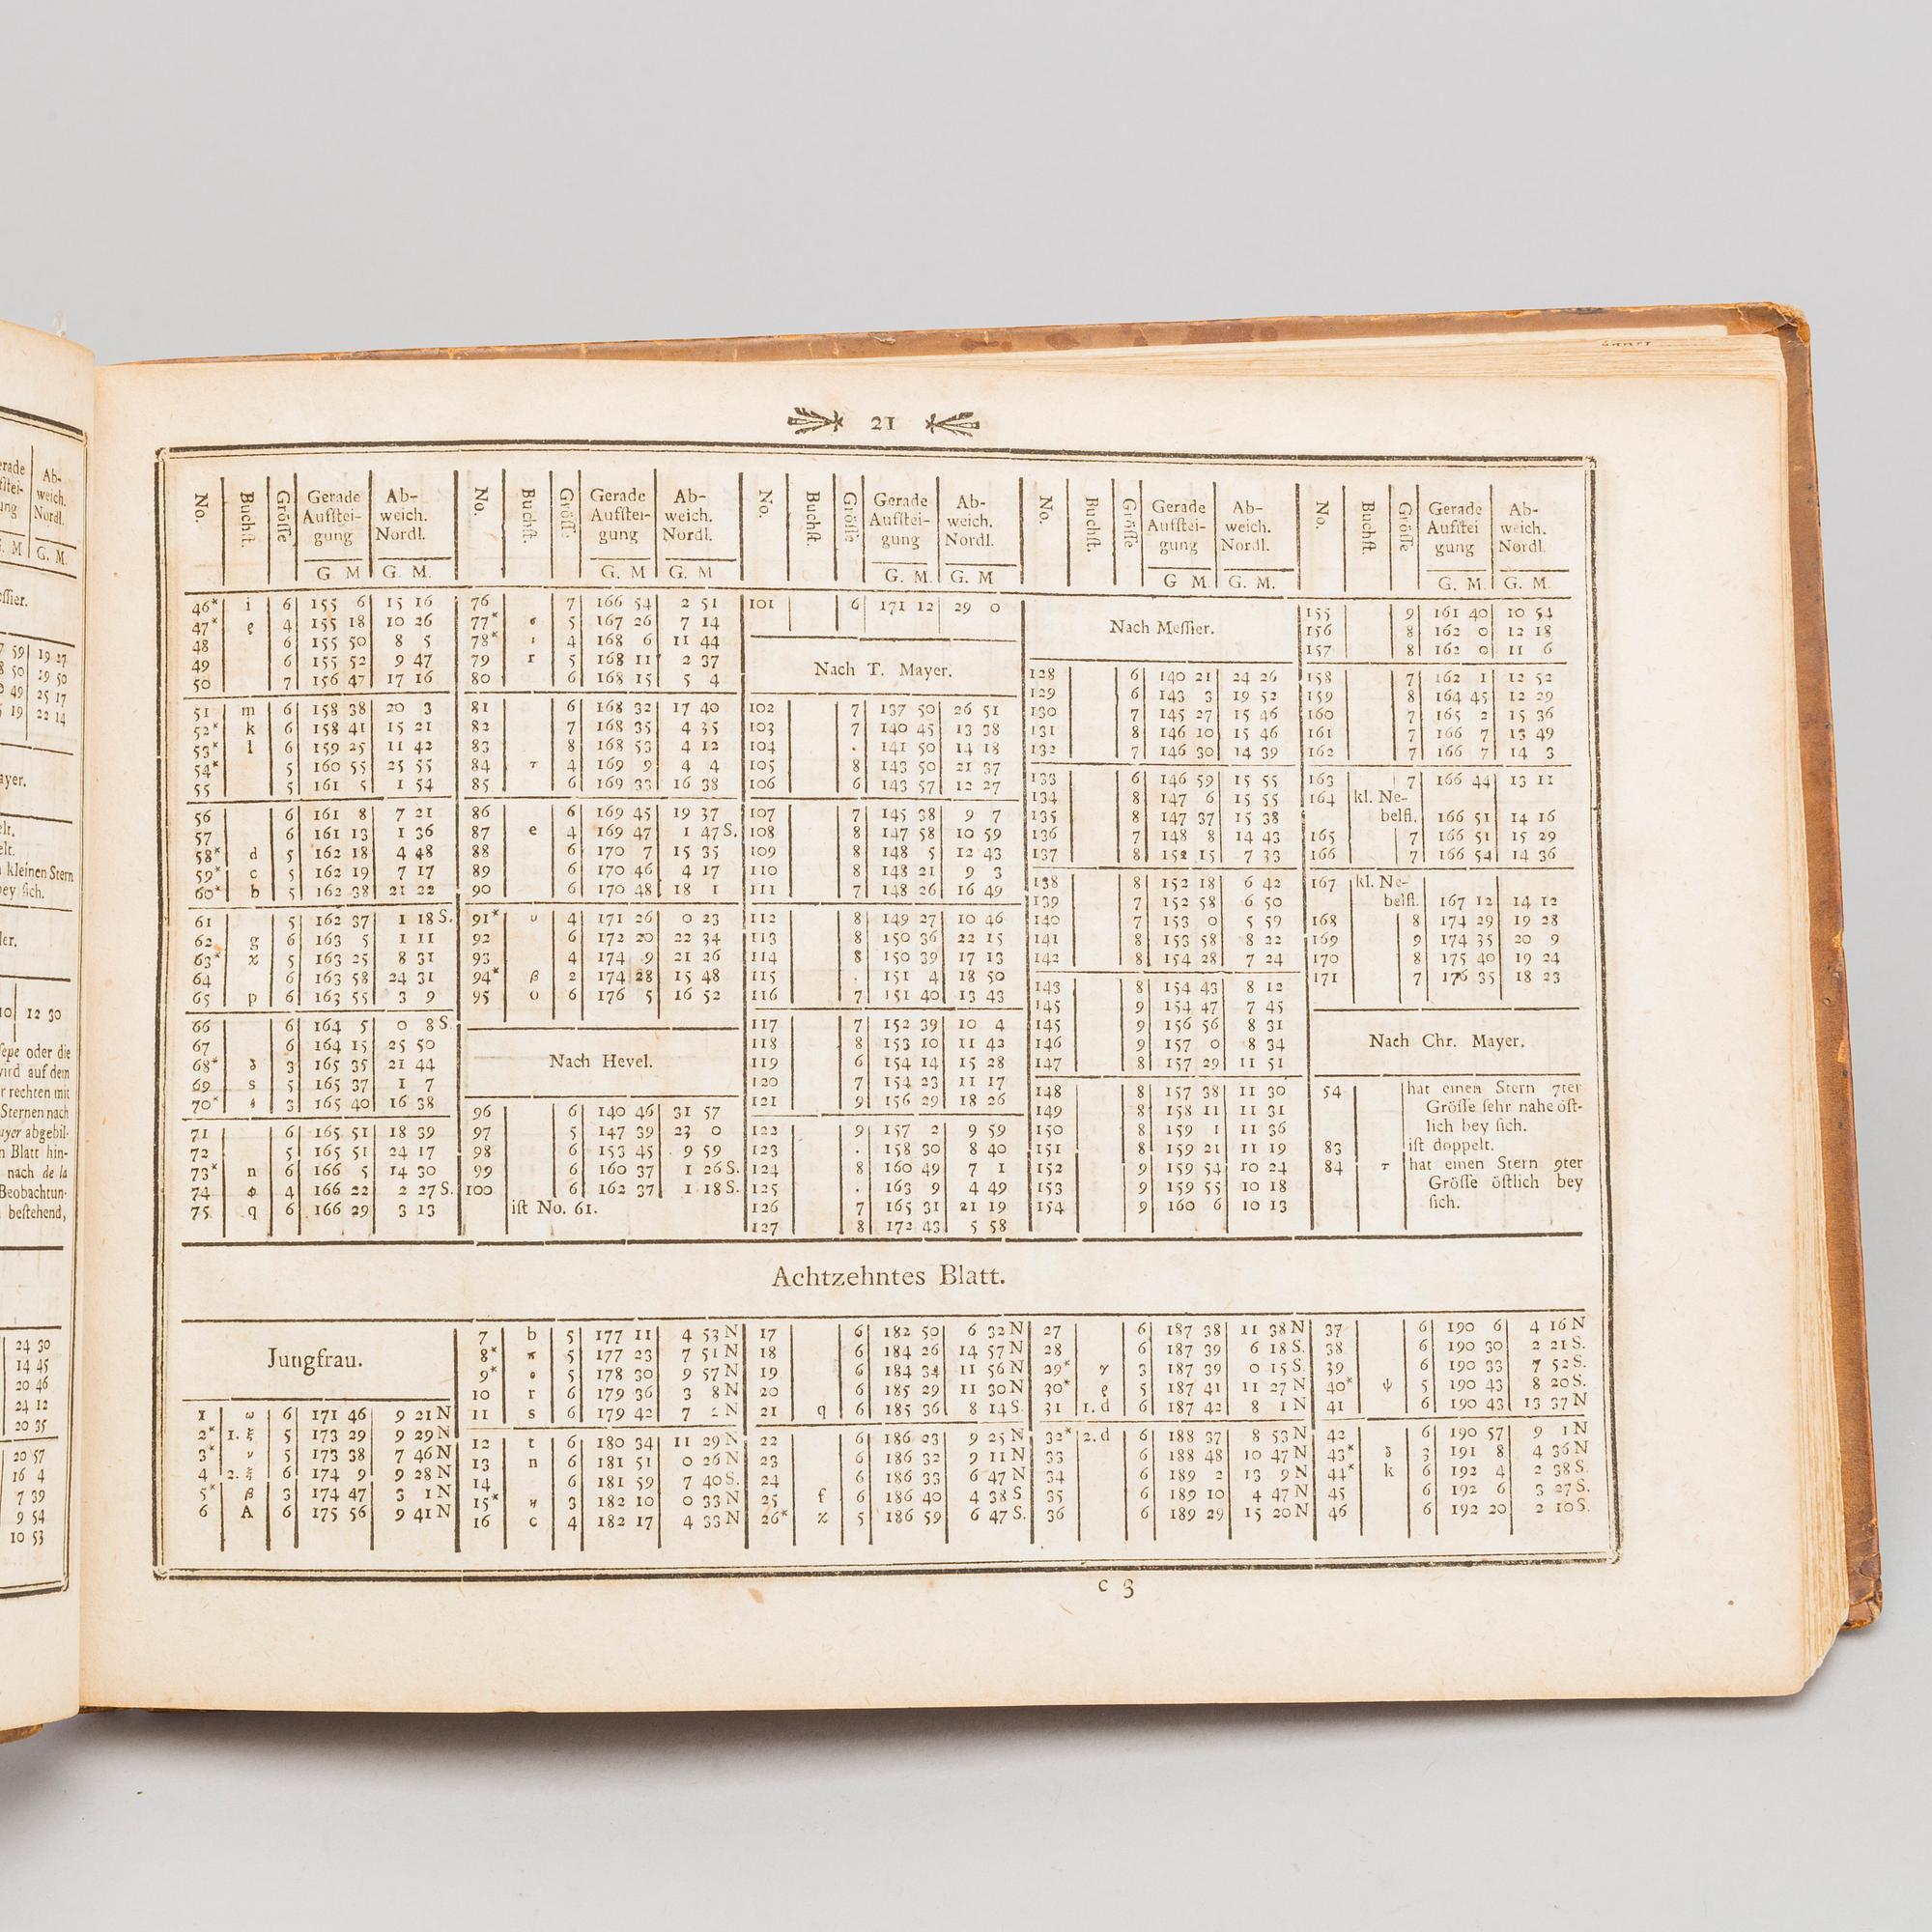 21
No. Buchst. Grösse Gerade Aufstei- gung G M Ab- weich. Nordl. G. M.
46* i 6 155 6 15 16
47* ϱ 4 155 18 10 26
48 6 155 50 8 5
49 6 155 52 9 47
50 7 156 47 17 16
51 m 6 158 38 20 3
52* k 6 158 41 15 21
53* l 6 159 25 11 42
54* 5 160 55 25 55
55 5 161 5 1 54
56 6 161 8 7 21
57 6 161 13 1 36
58* d 5 162 18 4 48
59* c 5 162 19 7 17
60* b 5 162 38 21 22
61 5 162 37 1 18 S.
62 g 6 163 5 1 11
63* χ 5 163 25 8 31
64 6 163 58 24 31
65 p 6 163 55 3 9
66 6 164 5 0 8 S.
67 6 164 15 25 50
68* δ 3 165 35 21 44
69 s 5 165 37 1 7
70* θ 3 165 40 16 38
71 6 165 51 18 39
72 5 165 51 24 17
73* n 6 166 5 14 30
74 φ 4 166 22 2 27 S.
75 q 6 166 29 3 13
No. Buchst. Grösse Gerade Aufstei- gung G. M Ab- weich. Nordl. G. M
76 7 166 54 2 51
77* σ 5 167 26 7 14
78* ι 4 168 6 11 44
79 r 5 168 11 2 37
80 6 168 15 5 4
81 6 168 32 17 40
82 7 168 35 4 35
83 8 168 53 4 12
84 τ 4 169 9 4 4
85 6 169 33 16 38
86 6 169 45 19 37
87 e 4 169 47 1 47 S.
88 6 170 7 15 35
89 6 170 46 4 17
90 6 170 48 18 1
91* υ 4 171 26 0 23
92 6 172 20 22 34
93 4 174 9 21 26
94* β 2 174 28 15 48
95 o 6 176 5 16 52
Nach Hevel.
96 6 140 46 31 57
97 5 147 39 23 0
98 6 153 45 9 59
99 6 160 37 1 26 S.
100 6 162 37 1 18 S.
ist No. 61.
No. Buchst. Grösse Gerade Aufstei- gung G. M. Ab- weich. Nordl. G. M
101 6 171 12 29 0
Nach T. Mayer.
102 7 137 50 26 51
103 7 140 45 13 38
104 . 141 50 14 18
105 8 143 50 21 37
106 6 143 57 12 27
107 7 145 38 9 7
108 8 147 58 10 59
109 8 148 5 12 43
110 8 148 21 9 3
111 7 148 26 16 49
112 8 149 27 10 46
113 8 150 36 22 15
114 8 150 39 17 13
115 . 151 4 18 50
116 7 151 40 13 43
117 7 152 39 10 4
118 8 153 10 11 42
119 6 154 14 15 28
120 7 154 23 11 17
121 9 156 29 18 26
122 9 157 2 9 59
123 . 158 30 8 40
124 8 160 49 7 1
125 . 163 9 4 49
126 7 165 31 21 19
127 8 172 43 5 58
No. Buchst. Grösse Gerade Aufstei- gung G M Ab- weich. Nordl. G. M.
Nach Messier.
128 6 140 21 24 26
129 6 143 3 19 52
130 7 145 27 15 46
131 8 146 10 15 46
132 7 146 30 14 39
133 6 146 59 15 55
134 8 147 6 15 55
135 8 147 37 15 38
136 7 148 8 14 43
137 8 152 15 7 33
138 8 152 18 6 42
139 7 152 58 6 50
140 7 153 0 5 59
141 8 153 58 8 22
142 8 154 28 7 24
143 8 154 43 8 12
145 9 154 47 7 45
145 9 156 56 8 31
146 9 157 0 8 34
147 8 157 29 11 51
148 8 157 38 11 30
149 8 158 11 11 31
150 8 159 1 11 36
151 8 159 21 11 19
152 9 159 54 10 24
153 9 159 55 10 18
154 9 160 6 10 13
No. Buchst. Grösse Gerade Aufstei gung G. M. Ab- weich. Nordl. G. M.
155 9 161 40 10 54
156 8 162 0 12 18
157 8 162 0 11 6
158 7 162 1 12 52
159 8 164 45 12 29
160 7 165 2 15 36
161 7 166 7 13 49
162 7 166 7 14 3
163 7 166 44 13 11
164 kl. Ne-
belfl. 166 51 14 16
165 7 166 51 15 29
166 7 166 54 14 36
167 kl. Ne-
belfl. 167 12 14 12
168 8 174 29 19 28
169 9 174 35 20 9
170 8 175 40 19 24
171 7 176 35 18 23
Nach Chr. Mayer.
54 hat einen Stern 7ter
Grösse sehr nahe öst-
lich bey sich.
83 ist doppelt.
84 τ hat einen Stern 9ter
Grösse östlich bey
sich.
Achtzehntes Blatt.
Jungfrau.
1 ω 6 171 46 9 21 N
2* 1. ξ 5 173 29 9 29 N
3* ν 5 173 38 7 46 N
4 2. ξ 6 174 9 9 28 N
5* β 3 174 47 3 1 N
6 A 6 175 56 9 41 N
7 b 5 177 11 4 53 N
8* π 5 177 23 7 51 N
9* ο 5 178 30 9 57 N
10 r 6 179 36 3 8 N
11 s 6 179 42 7 2 N
12 t 6 180 34 11 29 N
13 n 6 181 51 0 26 N
14 6 181 59 7 40 S.
15* η 3 182 10 0 33 N
16 c 4 182 17 4 33 N
17 6 182 50 6 32 N
18 6 184 26 14 57 N
19 6 184 34 11 56 N
20 6 185 29 11 30 N
21 q 6 185 36 8 14 S
22 6 186 23 9 25 N
23 6 186 32 9 11 N
24 6 186 33 6 47 N
25 f 6 186 40 4 38 S
26* χ 5 186 59 6 47 S.
27 6 187 38 11 38 N
28 6 187 39 6 18 S.
29* γ 3 187 39 0 15 S.
30* ϱ 5 187 41 11 27 N
31 1. d 6 187 42 8 1 N
32* 2. d 6 188 37 8 53 N
33 6 188 48 10 47 N
34 6 189 2 13 9 N
35 6 189 10 4 47 N
36 6 189 29 15 20 N
37 6 190 6 4 16 N
38 6 190 30 2 21 S.
39 6 190 33 7 52 S.
40* ψ 5 190 43 8 20 S.
41 6 190 43 13 37 N
42 6 190 57 9 1 N
43* δ 3 191 8 4 36 N
44* k 6 192 4 2 38 S.
45 6 192 6 3 27 S.
46 6 192 20 2 10 S.
c 3